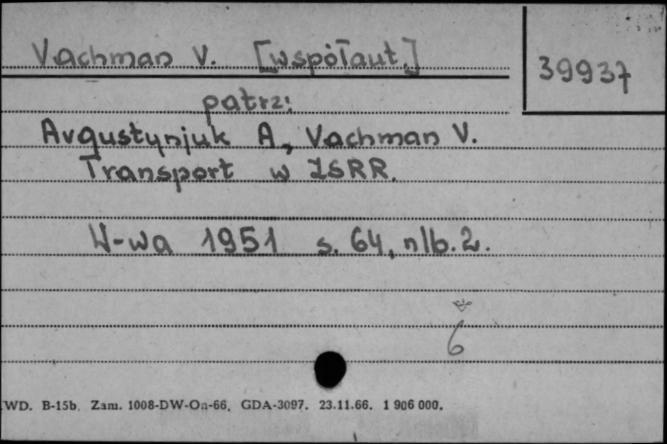 Vachman V. [współaut.]
39937
patrz:
Avgustynjuk A., Vachman V.
Transport w ZSRR.
W-wa 1951 s. 64, nlb. 2.
6
WD. B-15b. Zam. 1008-DW-On-66. GDA-3097. 23.11.66. 1 906 000.